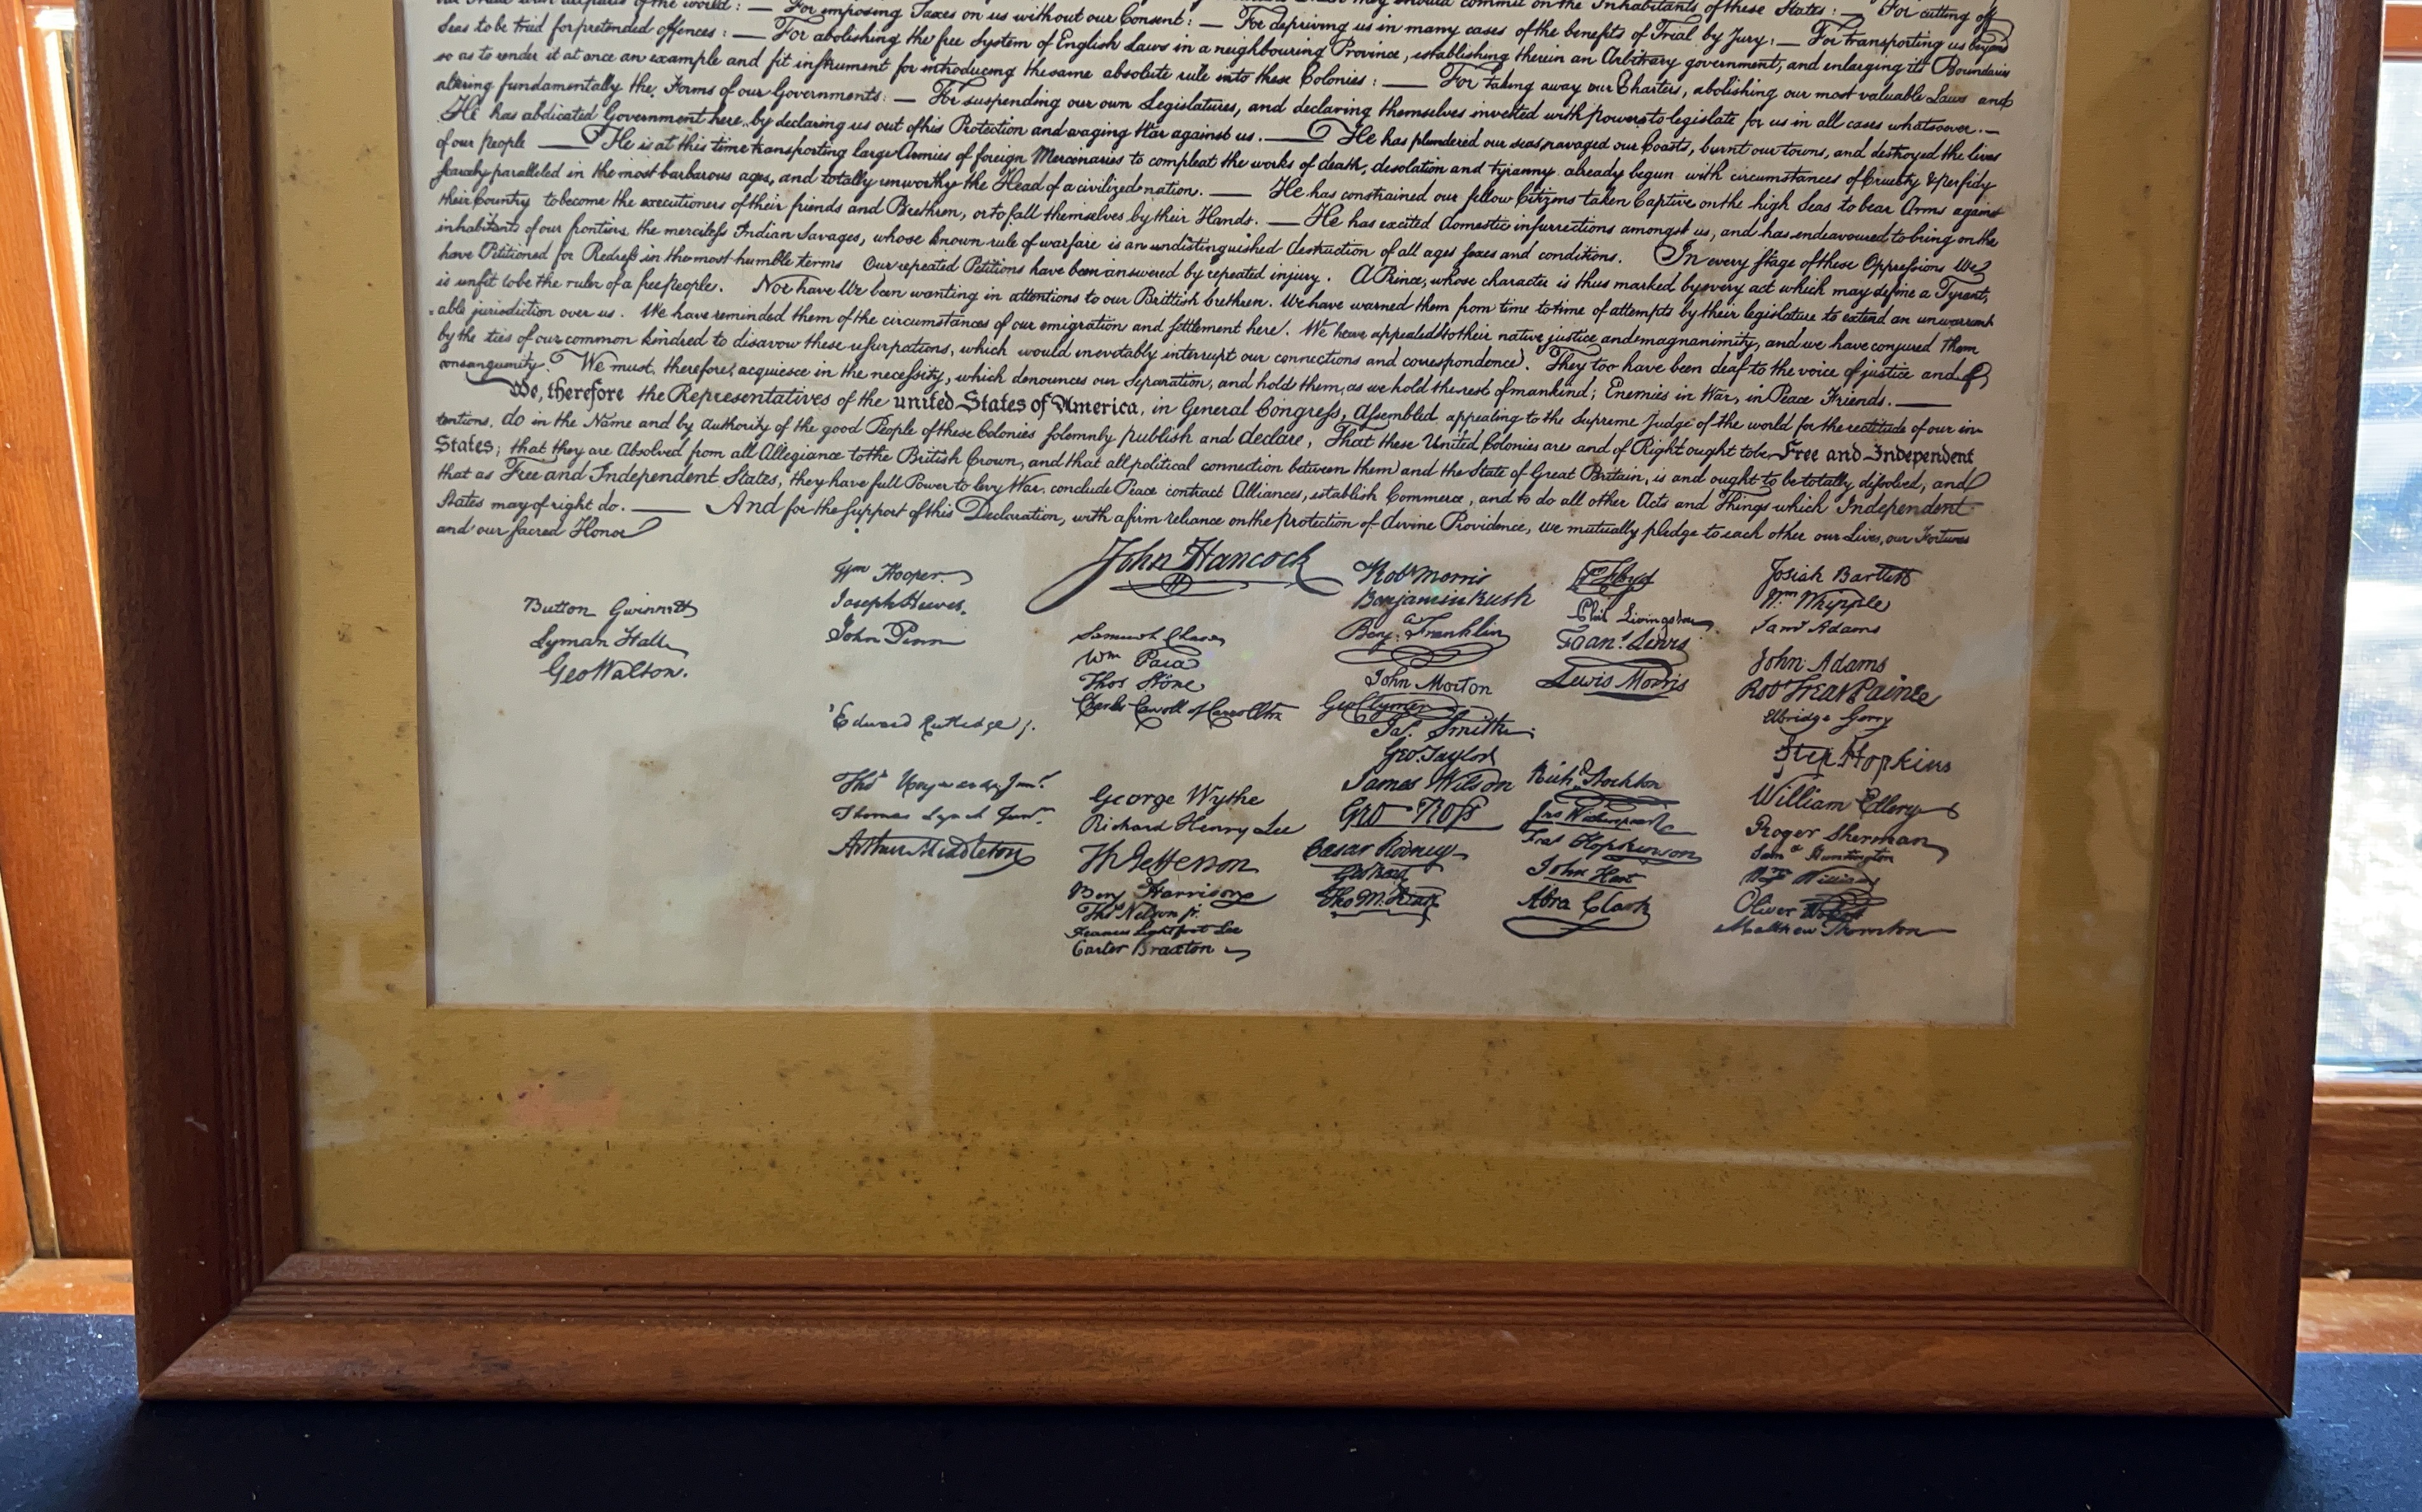 For imposing Taxes on us without our Consent : — For depriving us in many cases of the benefits of Trial by Jury : — For transporting us beyond
Seas to be tried for pretended offences : — For abolishing the free System of English Laws in a neighbouring Province, establishing therein an Arbitrary government, and enlarging its Boundaries
so as to render it at once an example and fit instrument for introducing the same absolute rule into these Colonies : — For taking away our Charters, abolishing our most valuable Laws and
altering fundamentally the Forms of our Governments : — For suspending our own Legislatures, and declaring themselves invested with power to legislate for us in all cases whatsoever. —
He has abdicated Government here, by declaring us out of his Protection and waging War against us. — He has plundered our seas, ravaged our Coasts, burnt our towns, and destroyed the lives
of our People — He is at this time transporting large Armies of foreign Mercenaries to compleat the works of death, desolation and tyranny already begun with circumstances of Cruelty & perfidy
scarcely paralleled in the most barbarous ages, and totally unworthy the Head of a civilized nation. — He has constrained our fellow Citizens taken Captive on the high Seas to bear Arms against
their Country to become the executioners of their friends and Brethren, or to fall themselves by their Hands. — He has excited domestic insurrections amongst us, and has endeavoured to bring on the
inhabitants of our frontiers, the merciless Indian Savages, whose known rule of warfare is an undistinguished destruction of all ages sexes and conditions. In every stage of these Oppressions We
have Petitioned for Redress in the most humble terms Our repeated Petitions have been answered by repeated injury. A Prince, whose character is thus marked by every act which may define a Tyrant,
is unfit to be the ruler of a free people. Nor have We been wanting in attentions to our Brittish brethren. We have warned them from time to time of attempts by their legislature to extend an unwarrant
=able jurisdiction over us. We have reminded them of the circumstances of our emigration and settlement here. We have appealed to their native justice and magnanimity, and we have conjured them
by the ties of our common kindred to disavow these usurpations, which would inevitably interrupt our connections and correspondence. They too have been deaf to the voice of justice and of
consanguinity. We must, therefore, acquiesce in the necessity, which denounces our Separation, and hold them, as we hold the rest of mankind; Enemies in War, in Peace Friends. —
We, therefore the Representatives of the united States of America, in General Congress, Assembled, appealing to the Supreme Judge of the world for the rectitude of our in=
tentions, do in the Name and by authority of the good People of these Colonies solemnly publish and declare, That these United Colonies are and of Right ought to be Free and Independent
States; that they are Absolved from all Allegiance to the British Crown, and that all political connection between them and the State of Great Britain, is and ought to be totally dissolved, and
that as Free and Independent States, they have full Power to levy War, conclude Peace contract Alliances, establish Commerce, and to do all other Acts and Things which Independent
States may of right do. — And for the support of this Declaration, with a firm reliance on the Protection of divine Providence, we mutually pledge to each other our Lives, our Fortunes
and our sacred Honor
Button Gwinnett
Lyman Hall
Geo Walton.
Wm Hooper.
Joseph Hewes,
John Penn
Edward Rutledge /.
Thos Heyward Junr.
Thomas Lynch Junr.
Arthur Middleton
John Hancock
Samuel Chase
Wm Paca
Thos Stone
Charles Carroll of Carrollton
George Wythe
Richard Henry Lee
Th Jefferson
Benj Harrison
Thos Nelson jr.
Francis Lightfoot Lee
Carter Braxton
Robt Morris
Benjamin Rush
Benja. Franklin
John Morton
Geo Clymer
Jas. Smith.
Geo. Taylor
James Wilson
Geo. Ross
Caesar Rodney
Geo Read
Tho M:Kean
Wm Floyd
Phil. Livingston
Frans. Lewis
Lewis Morris
Richd. Stockton
Jno Witherspoon
Fras. Hopkinson
John Hart
Abra Clark
Josiah Bartlett
Wm Whipple
Saml Adams
John Adams
Robt Treat Paine
Elbridge Gerry
Step. Hopkins
William Ellery
Roger Sherman
Saml Huntington
Wm Williams
Oliver Wolcott
Matthew Thornton